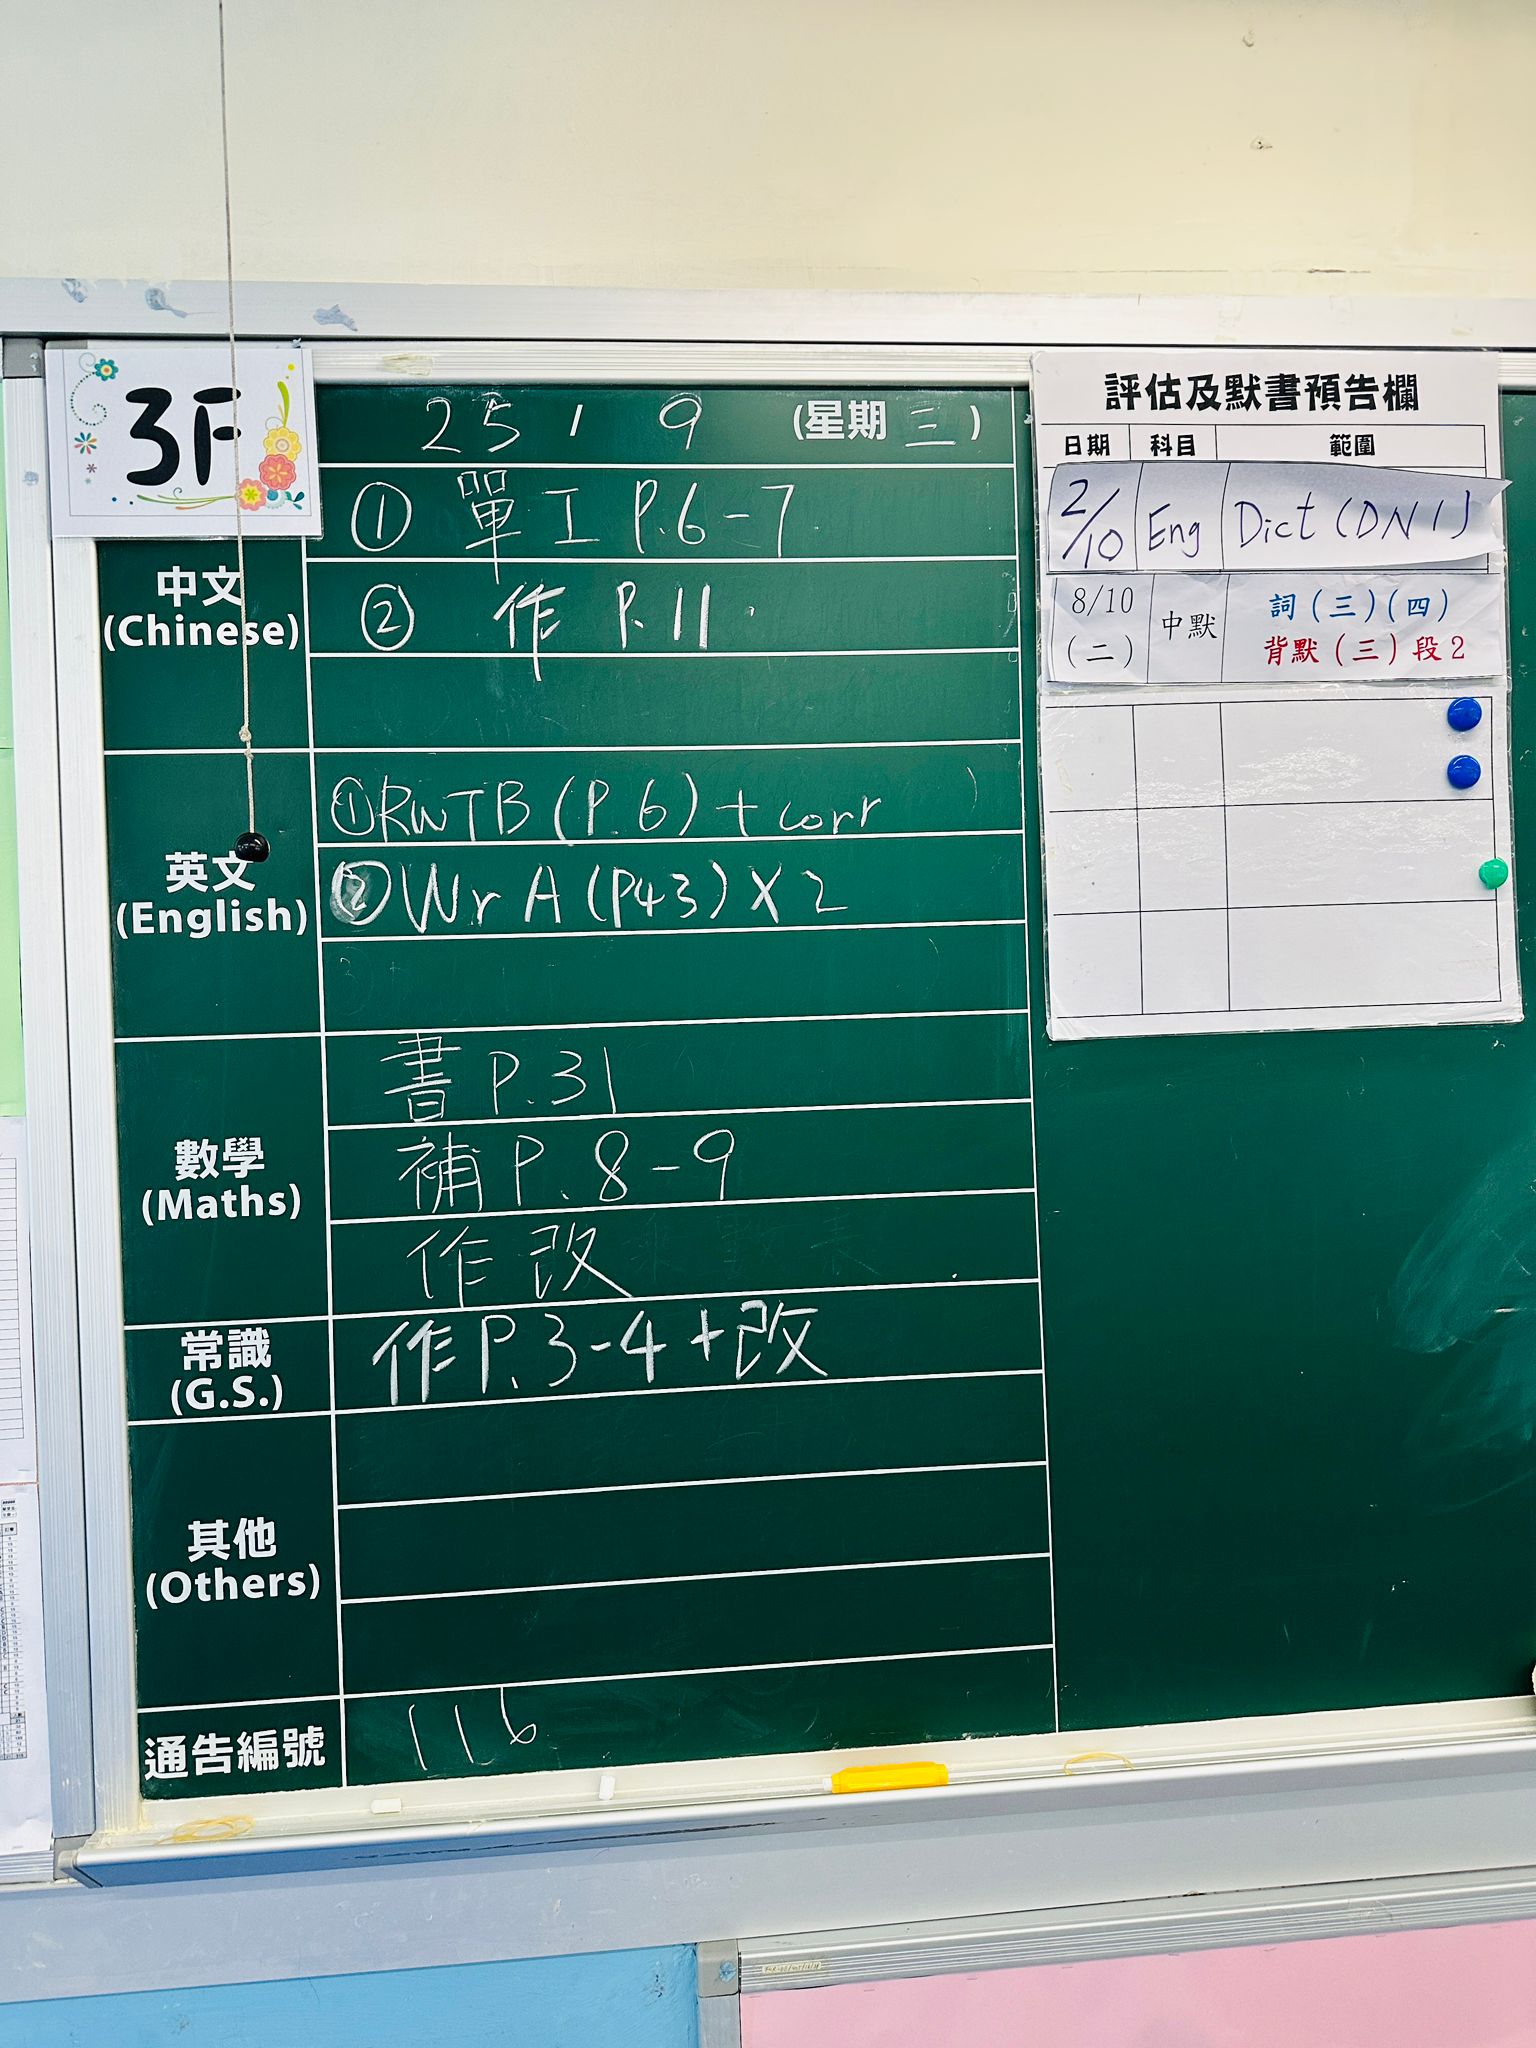 3F
25 / 9 (星期 三)
中文
(Chinese)
① 單工 P.6-7
② 作 P.11.
英文
(English)
①RWTB (P.6) + corr
②Wr A (P43) X 2
數學
(Maths)
書 P.31
補 P.8-9
作改
常識
(G.S.)
作P.3-4+改
其他
(Others)
通告編號
116
評估及默書預告欄
日期 科目 範圍
2/10 Eng Dict (DN1)
8/10 (二) 中默 詞(三)(四)
背默(三)段2